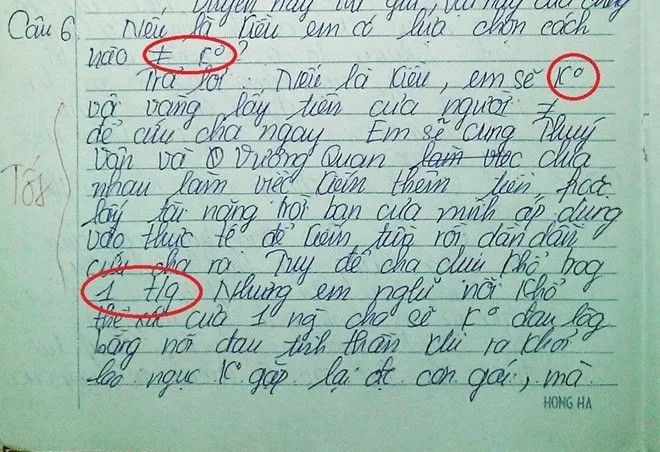 truyện này tác giả,
Câu 6. Nếu là Kiều em có lựa chọn cách
nào ≠ K°?
Trả lời: Nếu là Kiều, em sẽ K°
vội vàng lấy tiền của người ≠
để cứu cha ngay. Em sẽ cùng Thuý
Vân và Vương Quan làm việc chia
nhau làm việc kiếm thêm tiền hoặc
lấy tài năng trời ban của mình áp dụng
vào thực tế để kiếm tiền rồi dần dần
cứu cha ra. Tuy để cha chịu khổ trog
1 t/g. Nhưng em nghĩ nỗi khổ
thể xác của 1 ng cha sẽ K° đau lòg
bằng nỗi đau tinh thần khi ra khỏi
lao ngục K° gặp lại đc con gái, mà
Tốt
HONG HA